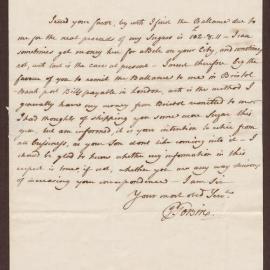 I read your favor, by wch I find the Ballance due to
me for the neat proceeds of my Sugars is 182.8.11 - I can
sometimes get money here for a Bill on your City, and sometimes
not, wch last is the case at present - I must therefore beg the
favour of you to remit the Ballance to me in Bristol
Bank post Bills payable in London, wch is the method I
generally have my money from Bristol remitted to me -
I had thought of shipping you some more Sugar this
year, but am informed it is your intention to retire from
all business, as your Son dont like coming into it - I
should be glad to know whether my information in this
respect is true, if not, whether you are any way desirous
of increasing your correspondence - I am Sir
Your most obed Serv.